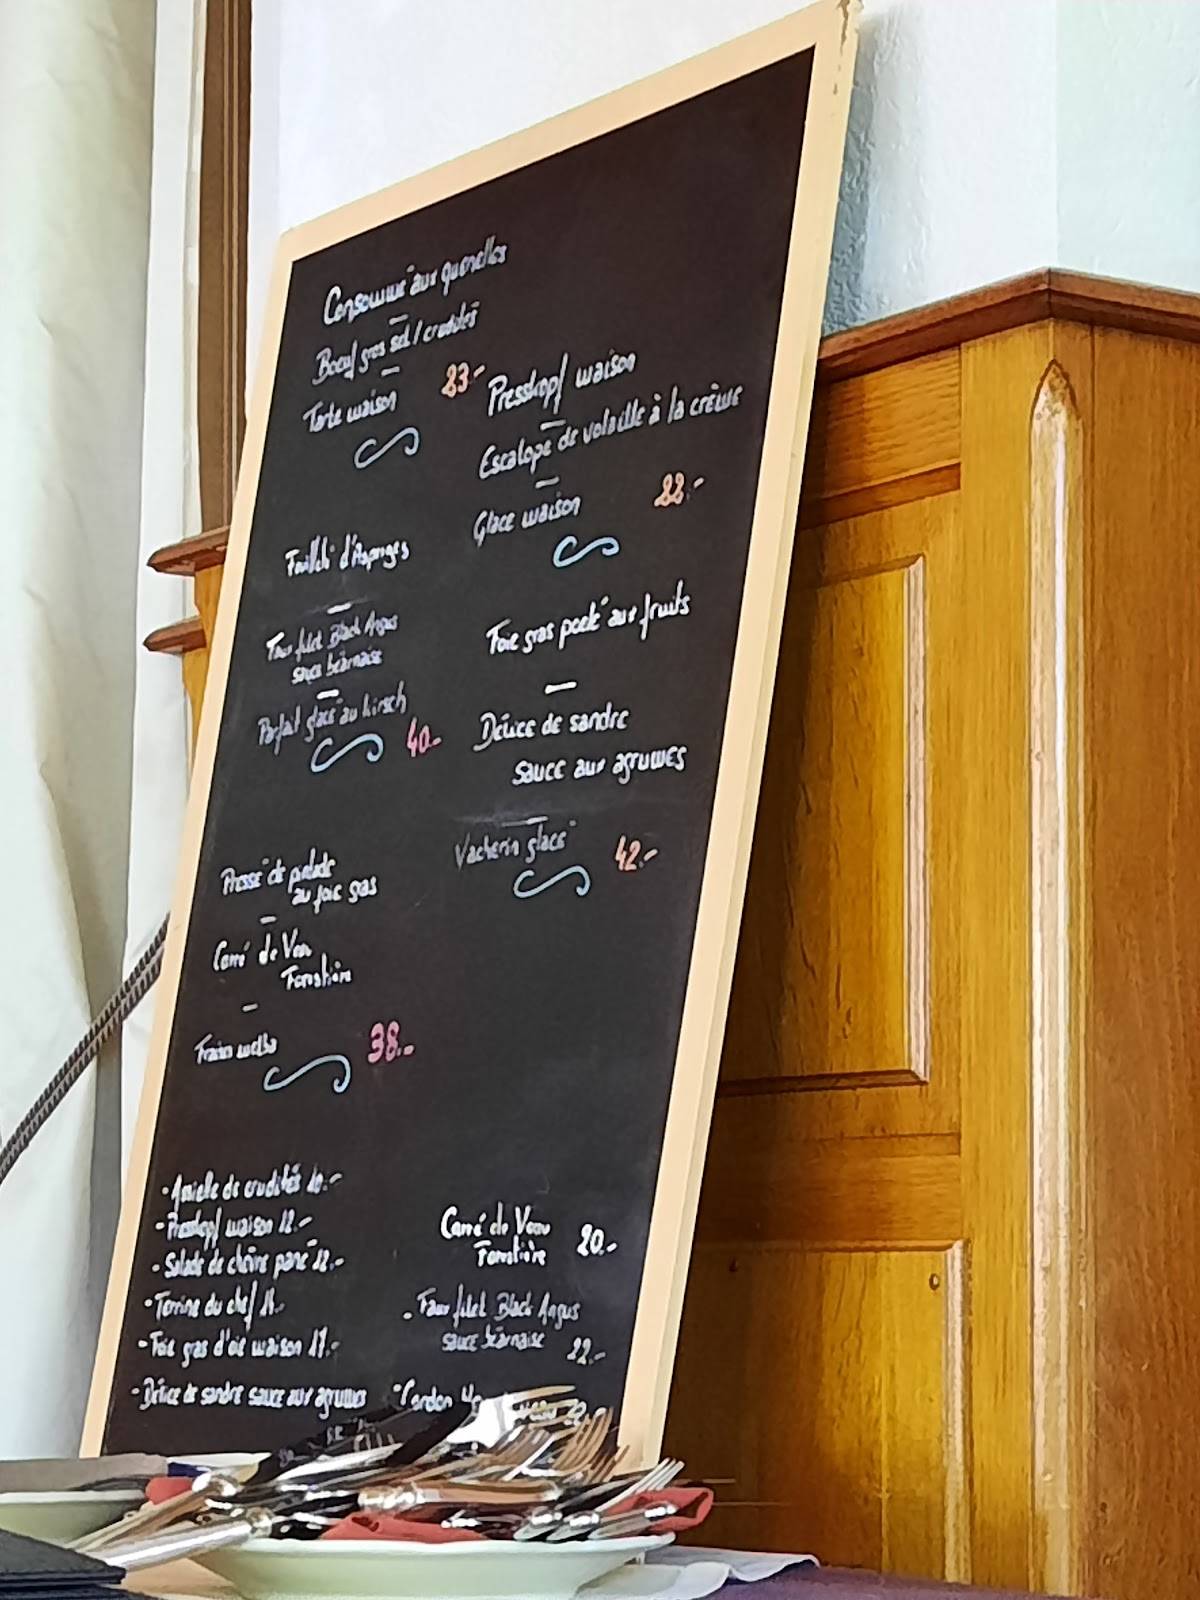 Consommé aux quenelles
Boeuf gros sel / crudités
Tarte maison 23.-
Presskopf maison
Escalope de volaille à la crème
Glace maison 22.-
Feuilleté d'Asperges
Faux filet Black Angus
sauce béarnaise
Parfait glacé au kirsch 40.-
Foie gras poelé aux fruits
Délice de sandre
sauce aux agrumes
Vacherin glacé 42.-
Pressé de pintade
au foie gras
Carré de Veau
Forestière
Fraises melba 38.-
- Assiette de crudités 10.-
- Presskopf maison 12.-
- Salade de chèvre pané 12.-
- Terrine du chef 14.-
- Foie gras d'oie maison 17.-
- Délice de sandre sauce aux agrumes
Carré de Veau
Forestière 20.-
- Faux filet Black Angus
sauce béarnaise 22.-
- Cordon